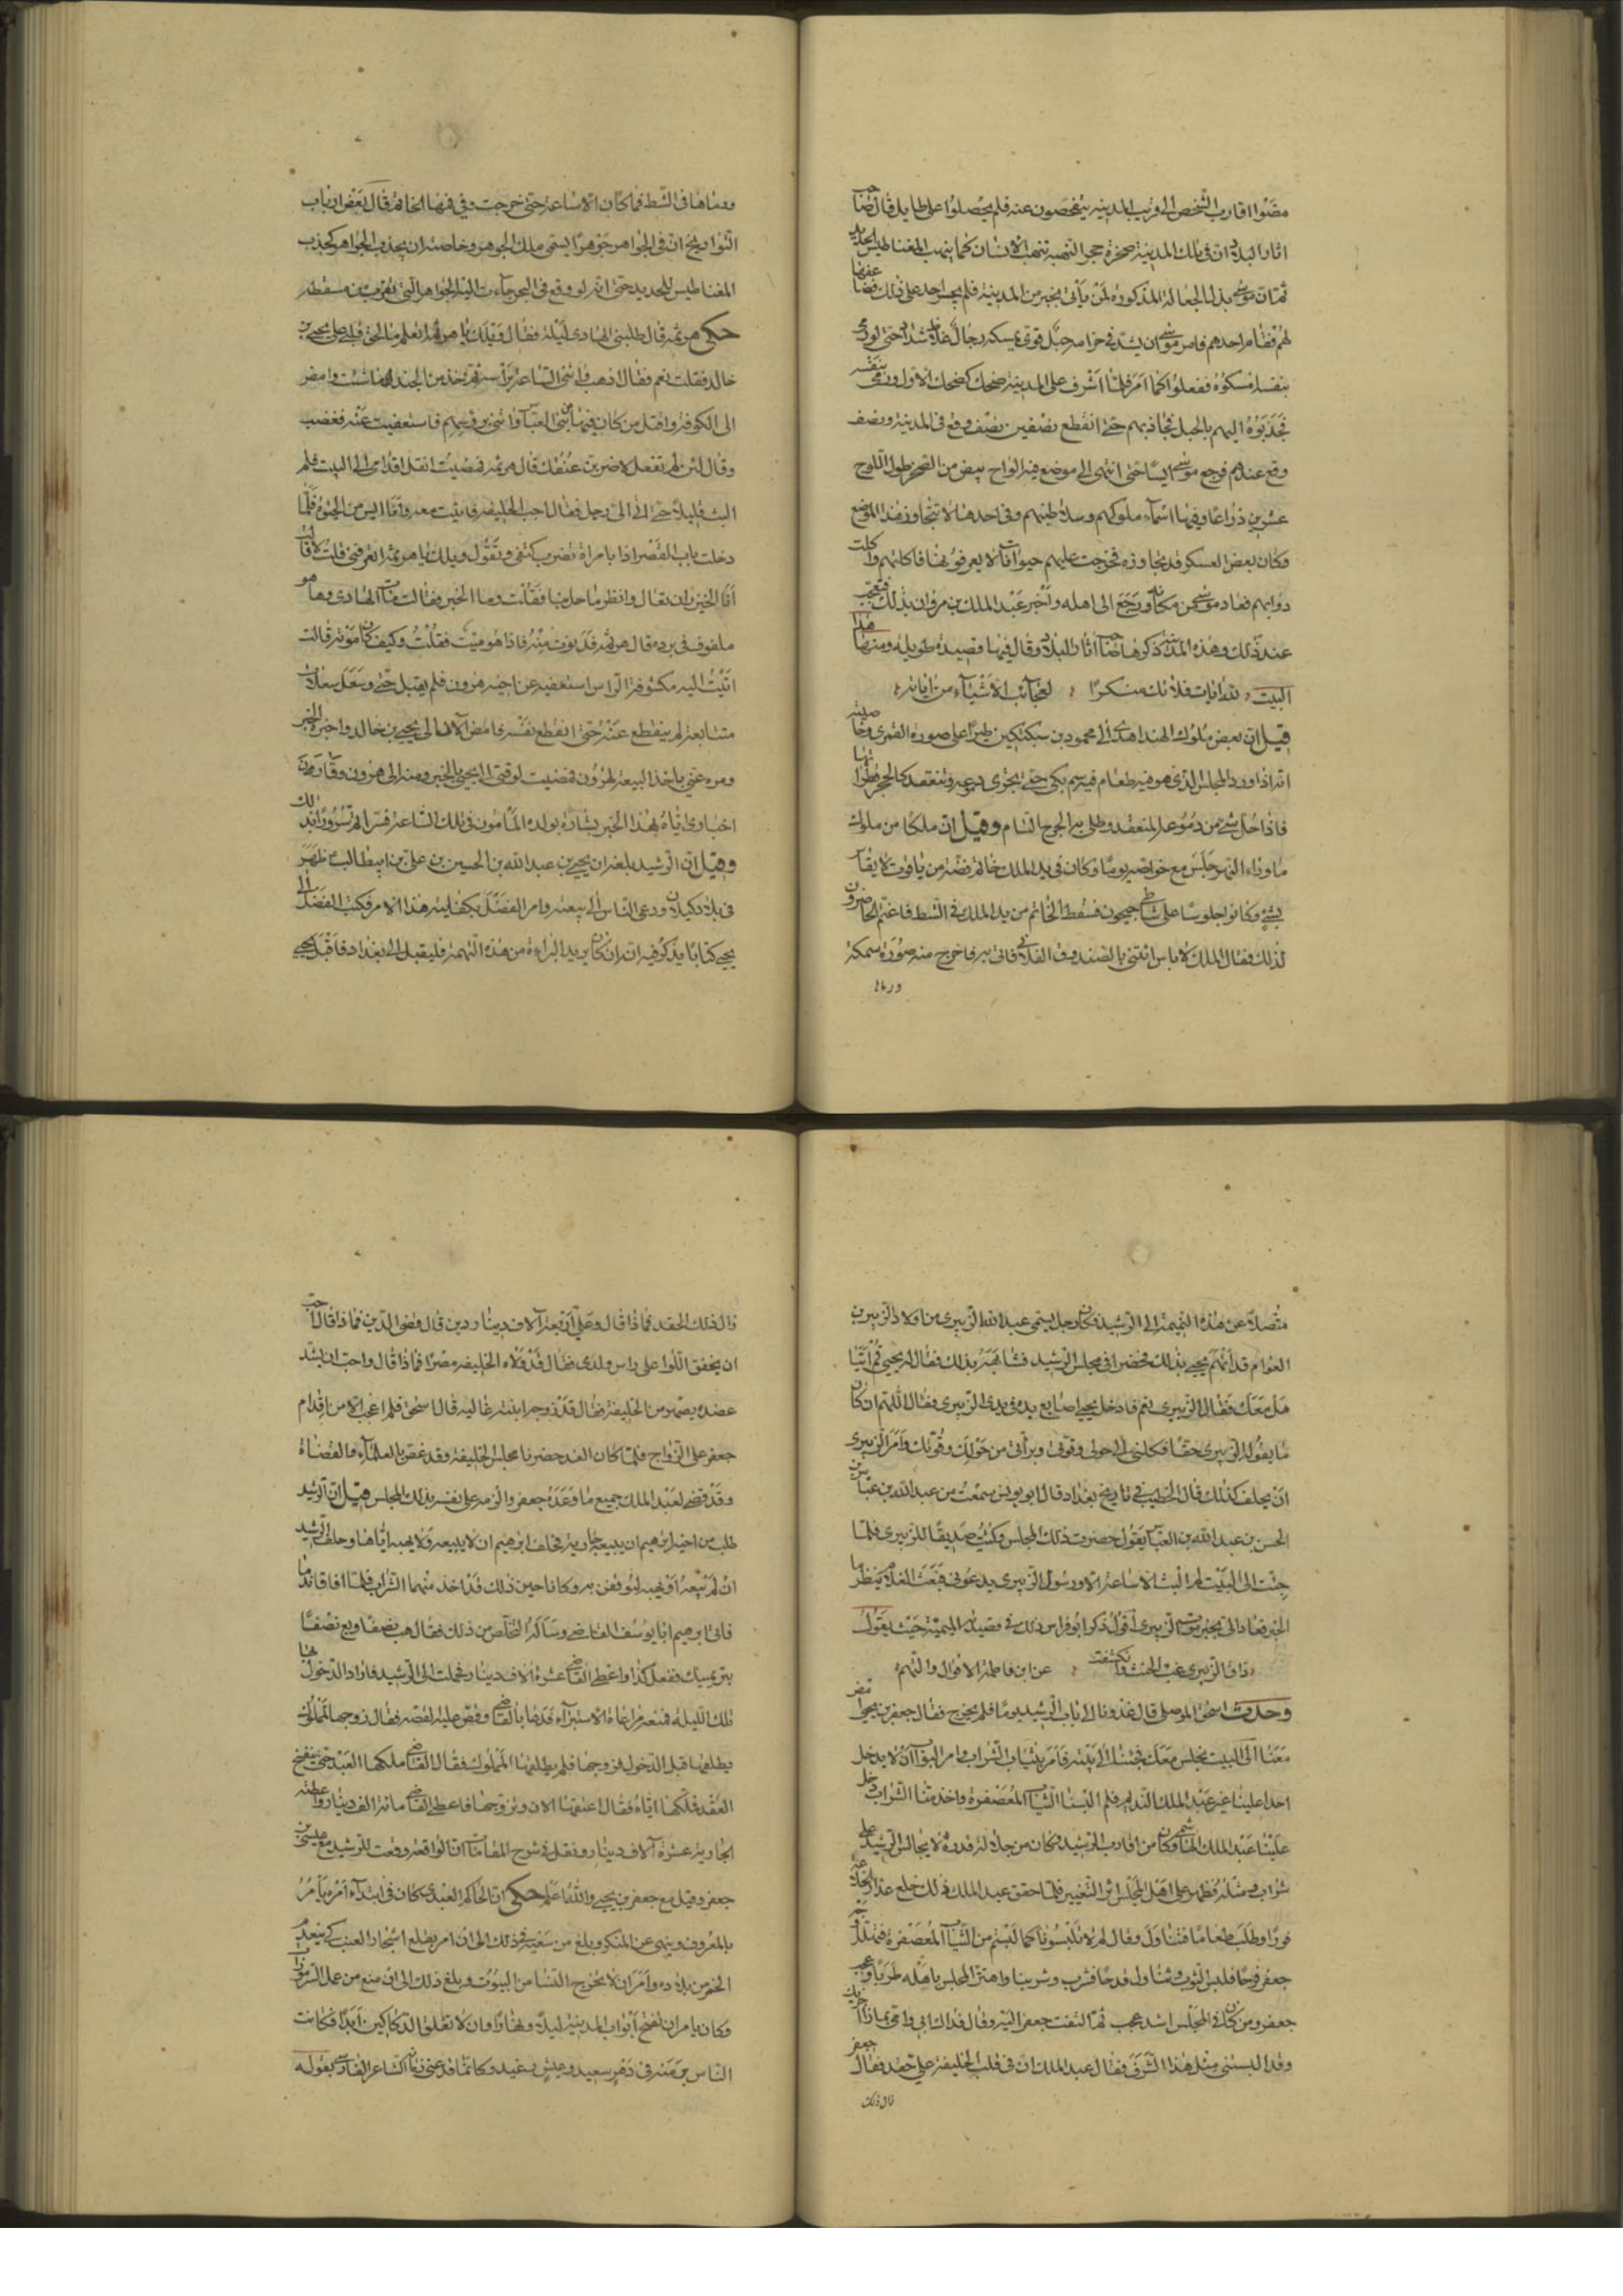 مضوا اقارب الشخص الى قريب المدينه يتفحصون عنه فلم يحصلوا على طايل قال صاحب
اثار البلاد ان فى تلك المدينة صخرة حجر البهتة تبهت الانسان كما المغناطيس الحديد
ثم ان موسى بذل الجعالة المذكورة لمن يأتى بخبر من المدينة فلم يجسر احد على ذلك
لهم فقام احدهم فامر موسى ان يشد فى حزامه حبل قوى يمسكه رجال غلاظ شداد حتى لو رمى
بنفسه امسكوه ففعلوا كما امر فلما اشرف على المدينة ضحك كضحك الاول ورمى بنفسه
فجذبوه اليهم بالحبل تجاذبهم حتى انقطع نصفين نصف وقع فى المدينة ونصف
وقع عندهم فرجع موسى حتى انتهى الى موضع فيه الواح بيض من الصخر طول اللوح
عشرين ذراعا وفيها اسماء ملوكهم وسلاطينهم وفى احدها لا تتجاوز هذا الموضع
وكان بعض العسكر قد تجاوزه فخرجت عليهم حيوانات لا يعرفونها فاكلتهم واكلت
دوابهم فعاد موسى من مكانه ورجع الى اهله واخبر عبد الملك بن مروان بذلك فتعجب
عند ذلك وهذه المدينة ذكرها صاحب اثار البلاد وقال فيها قصيدة طويلة ومنها هذا
البيت لله ايات فلا تك منكرا لعجائب الاشياء من اياته
قيل ان بعض ملوك الهند اهدى الى محمود بن سبكتكين طيرا على صورة القمرى وخاصيته
انه اذا ورد المجلس الذى هو فيه طعام فيه سم بكى حتى تجرى دموعه وتنعقد كالحجر
فاذا حل شئ من دموعه المنعقد وطلى به الجرح التام وقيل ان ملكا من ملوك
ماوراء النهر جلس مع خواصه يوما وكان فى يد الملك خاتم فضته من ياقوت لا يقاس
بشئ وكانوا جلوسا على شاطى جيحون فسقط الخاتم من يد الملك فى الشط فاغتم الحاضرون
لذلك فقال الملك لا باس ائتنى بالصندوق الفلانى فاتى به فاخرج منه صورة سمكة
ورماها
ورماها فى الشط فما كان الا ساعة حتى خرجت وفى فمها الخاتم قال بعض ارباب
التواريخ ان فى الجواهر جوهرا يسمى ملك الجوهر وخاصته ان يجذب الجواهر كجذب
المغناطيس للحديد حتى انه لو وقع فى البحر جاءت اليه الجواهر التى تقرب من مسقطه
حكى هرثمة قال طلبنى الهادى ليلة فقال ويلك يا هرثمة اتعلم ما لحق قلبى على يحيى بن
خالد فقلت نعم فقال اذهب وائتنى الساعة براسه ثم خذ من الجند ما شئت وامض
الى الكوفة واقتل من كان فيها من بنى العباس وائتنى بروسهم فاستعفيت عنه فغضب
وقال لئن لم تفعل لاضربن عنقك قال هرثمة فمضيت انقل اقدامى الى البيت فلم
البث قليلا حتى اتى الى رجل فقال اجب الخليفة فاتيت معه وانا ايس من الحيوة فلما
دخلت باب القصر اذا بامراة تضرب كتفى وتقول ويلك يا هرثمة اتعرفنى قلت لا قالت
انا الخيزران تعال وانظر ما حل بنا فقلت وما الخبر فقالت مات الهادى وها هو
ملفوف فى برد قال هرثمة فدنوت منه فاذا هو ميت فقلت وكيف كان موته قالت
اتيت اليه مكشوفة الراس استعفيه عن اخيه هرون فلم يقبل حتى وسعل سعلات
متتابعة لم ينقطع عنه حتى انقطع نفسه فامض الان الى يحيى بن خالد واخبره الخبر
ومره عنى باخذ البيعة لهرون فمضيت لوقتى الى يحيى بالخبر ومنه الى هرون وقارن
اخبارى اياه بهذا الخبر بشارة بولده المأمون فى تلك الساعة فتزايد سرورا بذلك
وقيل ان الرشيد بلغه ان يحيى بن عبد الله بن الحسين بن على بن ابيطالب ظهر
فى بلاد كيلان ودعى الناس الى بيعته وامر الفضل بكفايته هذا الامر فكتب الفضل الى
يحيى كتابا يذكر فيه انه ان كان يريد البراءة من هذه التهمة فليقبل الى بغداد فاقبل يحيى
متصلا عن هذه التهمة الى الرشيد فكان رجل يسمى عبد الله الزبيرى من اولاد الزبير بن
العوام قد اتهم يحيى بذلك فحضرا فى مجلس الرشيد بذلك فقال له يحيى
هل معك فقال الزبيرى نعم فادخل يحيى اصابع يده فى يدى الزبيرى وقال اللهم ان كان
ما يقوله الزبيرى حقا فكلنى الى حولى وقوتى وبرأنى من حولك وقوتك وامر الزبيرى
ان يحلف كذلك قال الخطيب فى تاريخ بغداد قال ابو يونس سمعت من عبد الله بن عباس بن
الحسن بن عبد الله بن العباس يقول حضرت ذلك المجلس وكنت صديقا للزبيرى فلما
جئت الى البيت لم البث الا ساعة الا ورسول الزبيرى يدعونى فبعثت الغلام ينظر ما
الخبر فعاد الى يخبر بموت الزبيرى اقول ذكر ابو فراس ذلك فى قصيدته الميمية حيث يقول
ذاق الزبيرى غب الحنث وانكشفت عن ابن فاطمة الاقوال والتهم
وحدث اسحق الموصلى قال غدونا الى باب الرشيد يوما فلم يخرج فقال جعفر بن يحيى تمضى
معنا الى البيت نجلس معك فجئنا الى بيته فامر بثياب الشراب وامر البواب ان لا يدخل
احدا علينا غير عبد الملك النديم فلم البسنا الثياب المعصفرة واخذ منا الشراب دخل
علينا عبد الملك الهاشمى وكان من اقارب الرشيد وكان من جلالة قدره لا يجالس الرشيد على
شراب ومثله فظهر على اهل المجلس اثر التغيير فلما حقق عبد الملك ذلك خلع عذار
فورا وطلب طعاما فتناول وقال لم لا تلبسونا كما لبستم من الثياب المعصفرة فتهلل
جعفر فرحا فلبس الثوب وتناول قدحا فشرب وشربنا واهتز المجلس باهله طربا وعجب
جعفر ومن كان فى المجلس اشد عجب ثم التفت جعفر اليه وقال فداك ابى وامى بماذا اجزيك
وقد البستنى مثل هذا الشرف فقال عبد الملك ان فى قلب الخليفة على حقد فقال جعفر
زال ذلك
زال ذلك الحقد فماذا قال وعلى اربعة آلاف دينار دين قال وفى الدين فماذا قال احب
ان يخفق اللوا على راس ولدى فقال قد ولاه الخليفة مصرا فماذا قال واحب ان يشد
عضده بصهر من الخليفة فقال قد زوجه ابنته غالية قال اسحق فلم اعجب الا من اقدام
جعفر على الزواج فلما كان الغد حضرنا مجلس الخليفة وقد غص بالعلماء والقضاة
وقد قضى لعبد الملك جميع ما وعده جعفر والزمه على نفسه بذلك المجلس قيل ان الرشيد
طلب من اخيه ابرهيم ان يبيعه جارية فحلف ابرهيم ان لا يبيعه ولا يهبه اياها وحلف الرشيد
ان لم يبعه او يهبه ليوقعن به وكانا حين ذلك قد اخذ منهما الشراب فلما افاقا ندما
فاتى ابرهيم ابا يوسف القاضى وسأله التخلص من ذلك فقال هب نصفا وبع نصفا
يبر يمينك ففعل كذا واعطى القاضى عشرة الاف دينار وحملت الى الرشيد فاراد الدخول بها
تلك الليلة فمنعه مراعاة الاستبراء فدعا بالقاضى وقص عليه القصة فقال زوجها لمملوك
يطلقها قبل الدخول فزوجها فلم يطلقها المملوك فقال القاضى ملكها العبد حتى ينفسخ
العقد فملكها اياه فقال اعتقها الان وتزوجها فاعطى القاضى مائة الف دينار واعطته
الجارية عشرة آلاف دينار ونقل فى شرح المقامات ان الواقعة وقعت للرشيد مع عيسى بن
جعفر وقيل مع جعفر بن يحيى والله اعلم حكى ان الحاكم العبيدى كان فى ابتداء امره يأمر
بالمعروف وينهى عن المنكر وبلغ من سعيه فى ذلك الى ان امر بقلع اشجار العنب كى ينعدم
الخمر من بلاده وامر ان لا يخرج النسا من البيوت وبلغ ذلك الى ان منع من عمل السرموزا
وكان يامر ان تفتح ابواب المدينة ليلا ونهارا وان لا تغلق الدكاكين ابدا فكانت
الناس من منه فى دهر سعيد وعيش رغيد وكانما قد عنى زمانه الشاعر الفارسى بقوله